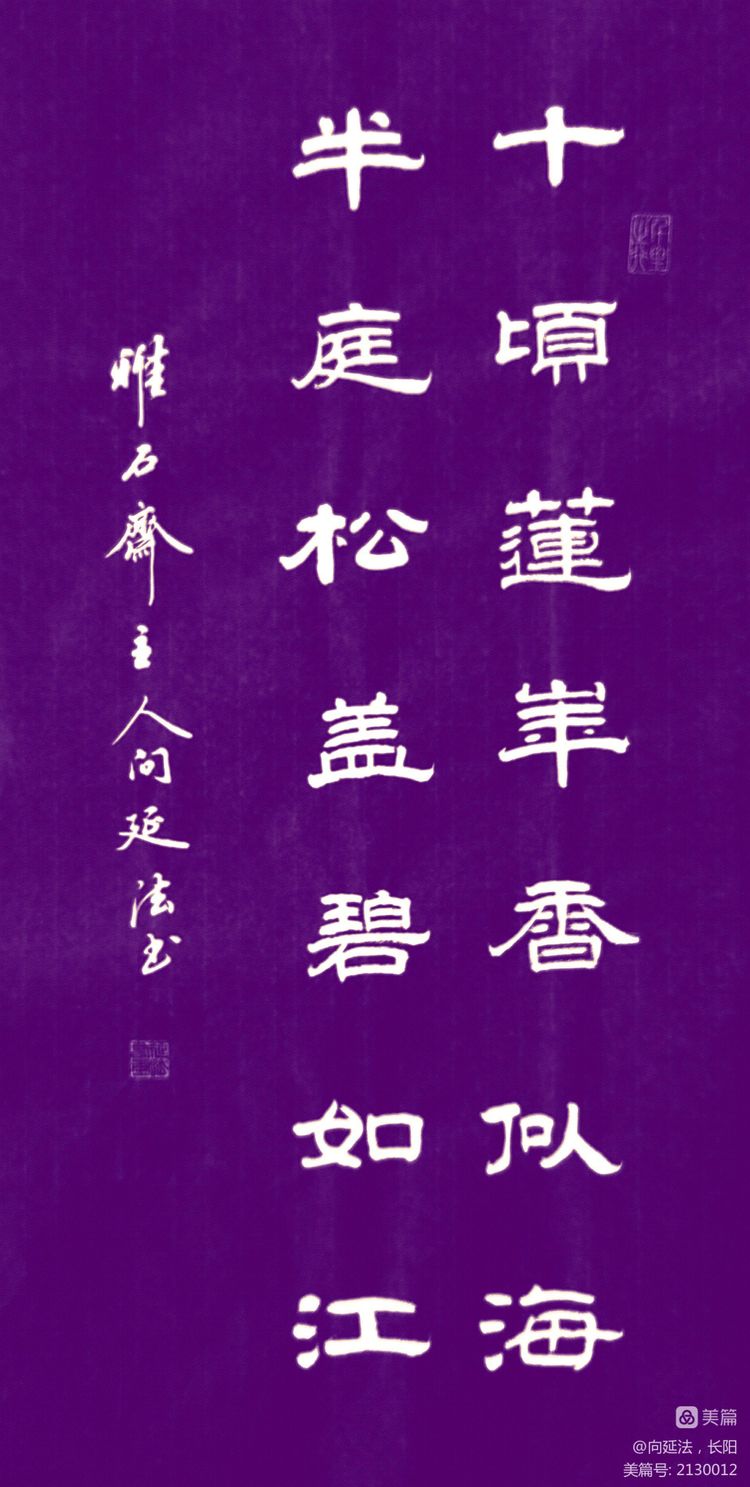 十頃蓮崋香似海
半庭松盖碧如江
石齋主人向延法书
美篇
@向延法，长阳
美篇号: 2130012